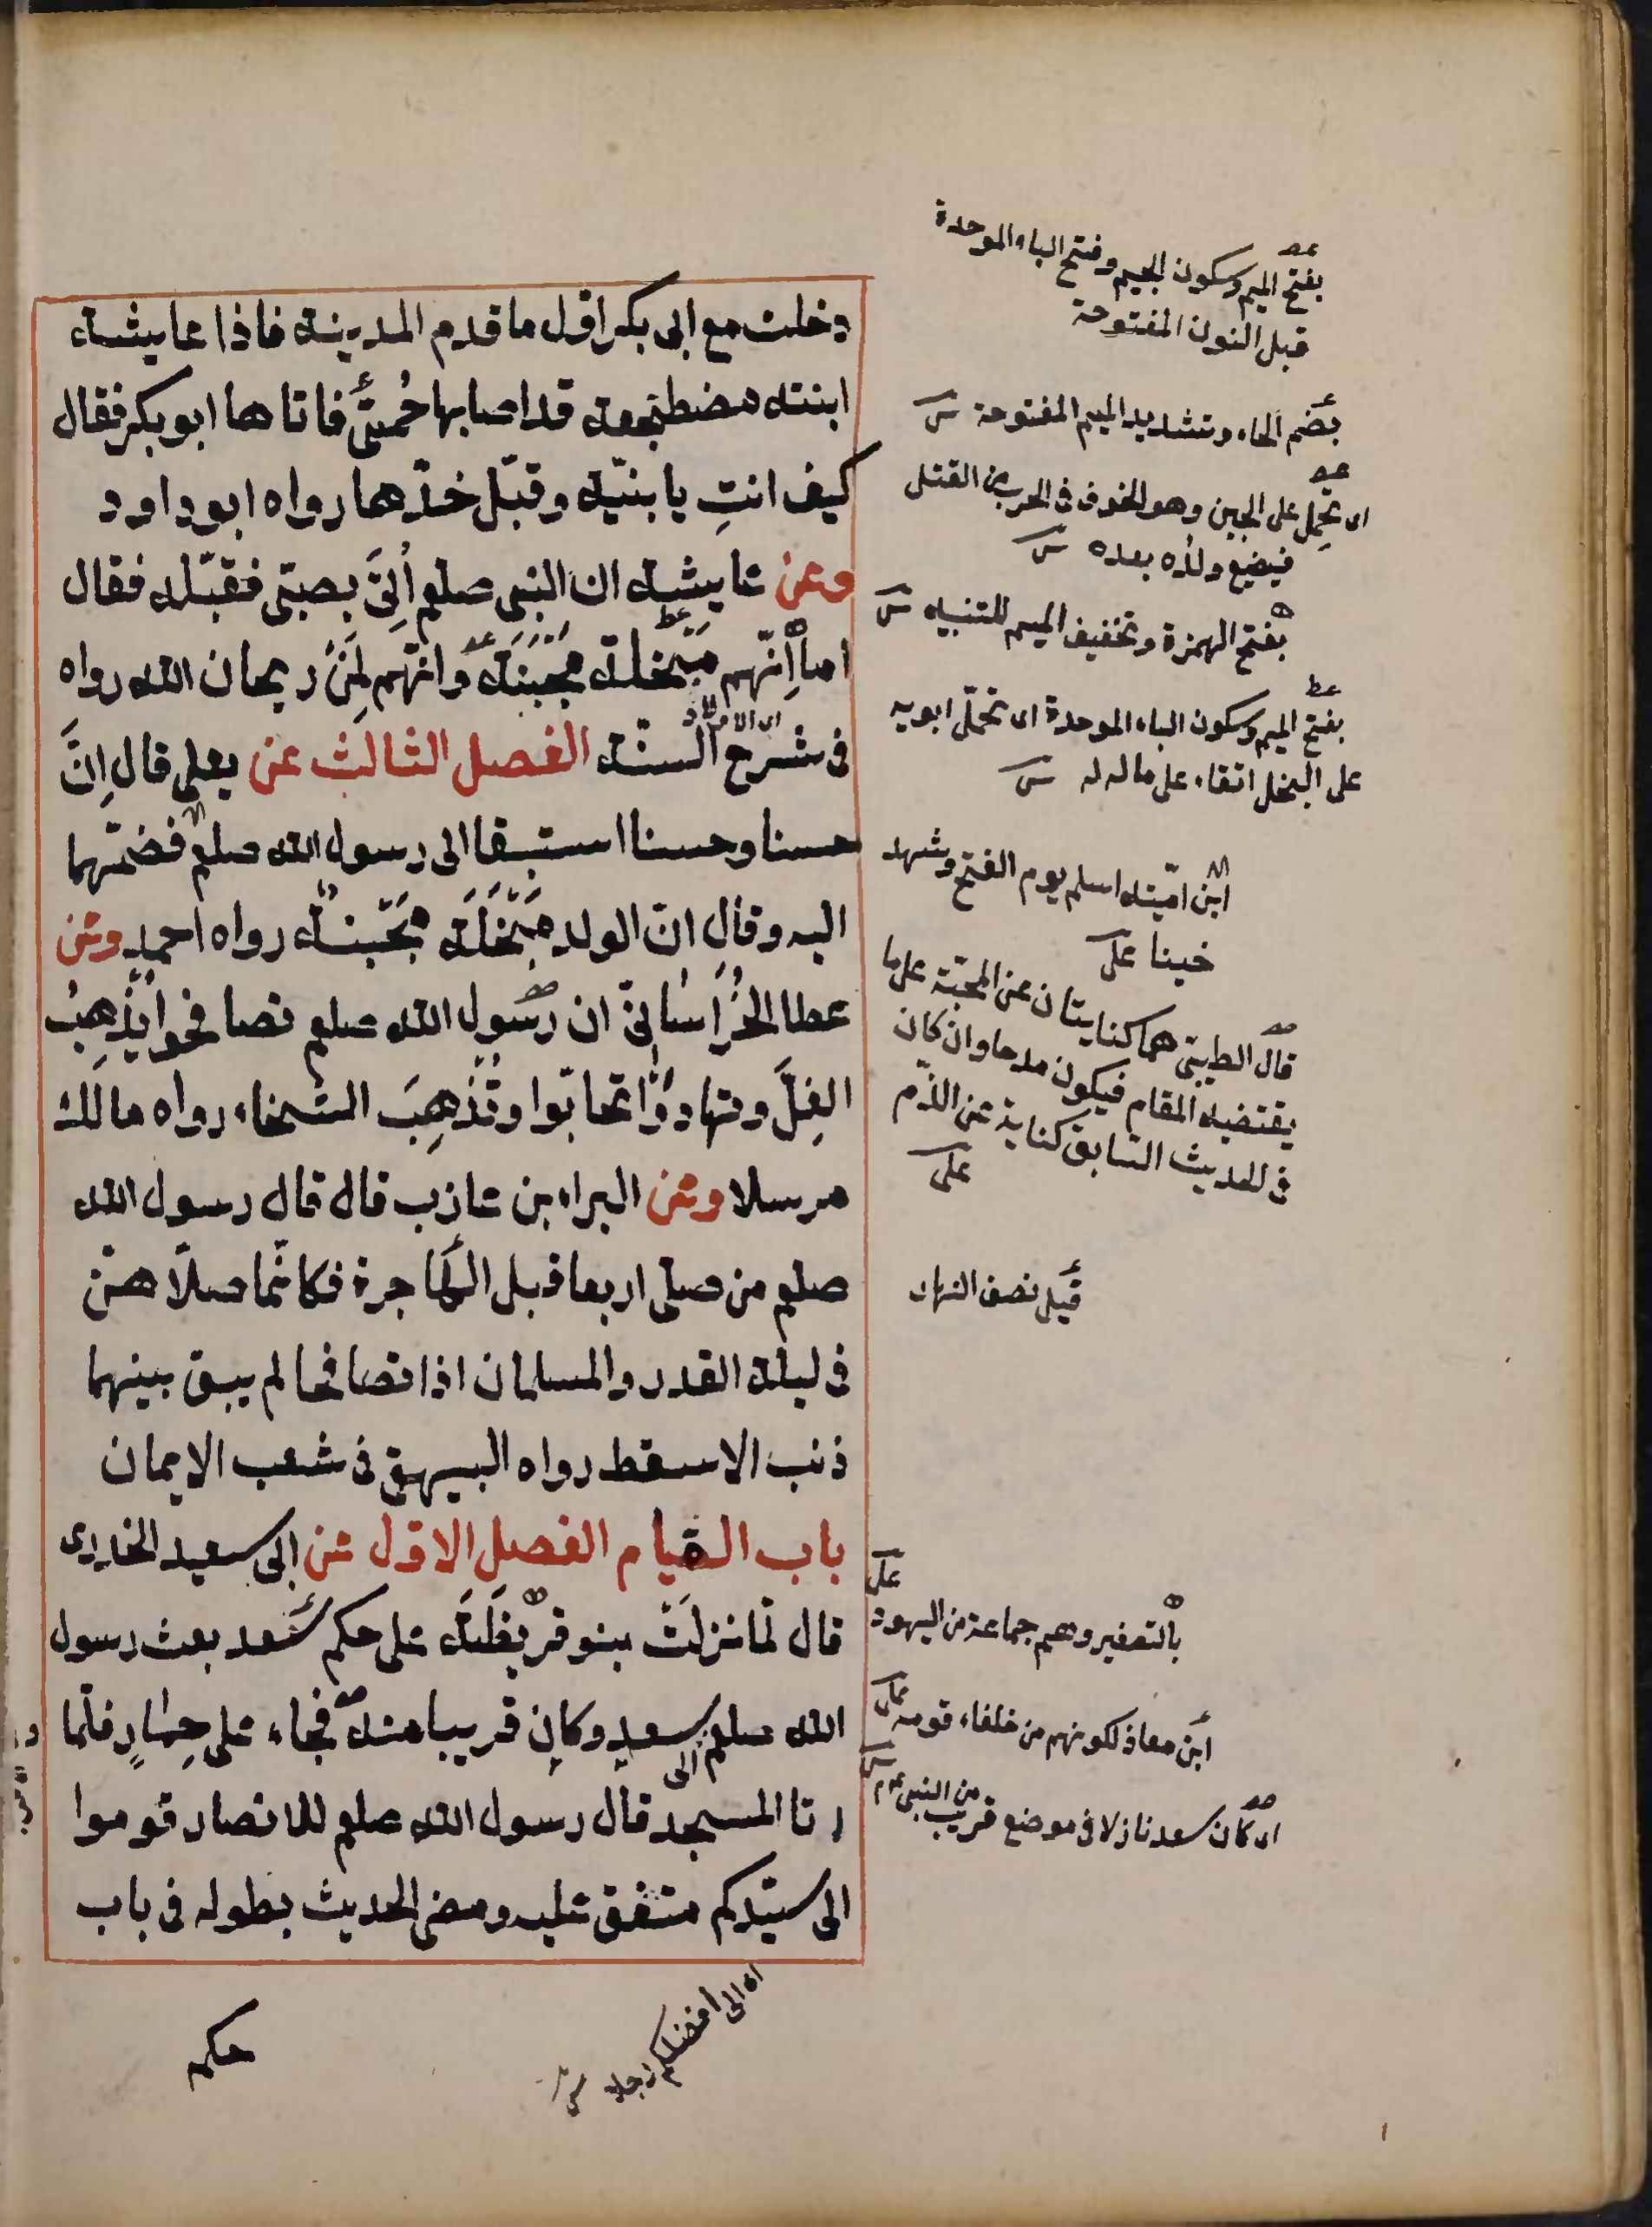 دخلت مع ابى بكر اوّل ما قدم المدينة فاذا عايشة
ابنته مضطجعة قد اصابها حُمّىٰ فاتاها ابو بكر فقال
كيف انتِ يا بنيّة وقبّل خدّها رواه ابو داود
وعن عايشة ان النبى صلعم اُتِىَ بصبىّ فقبّله فقال
اما اِنّهم مَبْخلة مَجْبَنَة وانّهم لَمِنْ ريحان الله رواه
اى الاولاد
فى شرح السنّة الفصل الثالث عن يعلى قال اِنَّ
حسنا وحسنا استبقا الى رسول الله صلعم فضمّهما
اليه وقال انّ الولد مَبْخَلَة مَجْبَنة رواه احمد وعن
عطا الخُرَاسَانىّ ان رسول الله صلعم تصافحوا يُذْهِبُ
الغِلَّ وتهادَوْا تحابّوا وتُذْهِبَ الشحناء رواه مالك
مرسلا وعن البراء بن عازب قال قال رسول الله
صلعم من صلى اربعا قبل الهاجرة فكانّما صلّاهنّ
فى ليلة القدر والمسلمان اذا تصافحا لم يبق بينهما
ذنب الا سقط رواه البيهقى فى شعب الايمان
باب القيام الفصل الاوّل عن ابى سعيد الخدرى
قال لمّا نزلَتْ بنو قُرَيْظَة على حكم سَعد بعث رسول
الله صلعم الى سعدٍ وكان قريبا منه فجاء على حِمَارٍ فلمّا
دنا المسجد قال رسول الله صلعم للانصار قوموا
الى سيّدكم متفق عليه ومضى الحديث بطوله فى باب
حكم
اى الى افضلكم رجلا
بفتح الميم وسكون الجيم وفتح الباء الموحدة
قبل النون المفتوحة
بضم الحاء وتشديد الميم المفتوحة
اى تحمل على الجبن وهو الخوف فى الحرب من القتل
فيضيع ولده بعده
بفتح الهمزة وتخفيف الميم للتنبيه
بفتح الميم وسكون الباء الموحدة اى تحمل ابويه
على البخل اتقاء على ماله له
ابن اميّة اسلم يوم الفتح وشهد
حنينا على
قال الطيبى هما كنايتان عن المحبّة على ما
يقتضيه المقام فيكون مدحا وان كان
فى الحديث السابق كناية عن الذّم
على
قبل نصف النهار
بالتصغير وهم جماعة من اليهود على
ابن معاذ لكونهم من خلفاء قومه على
اى كان سعد نازلا فى موضع قريب من النبى عم